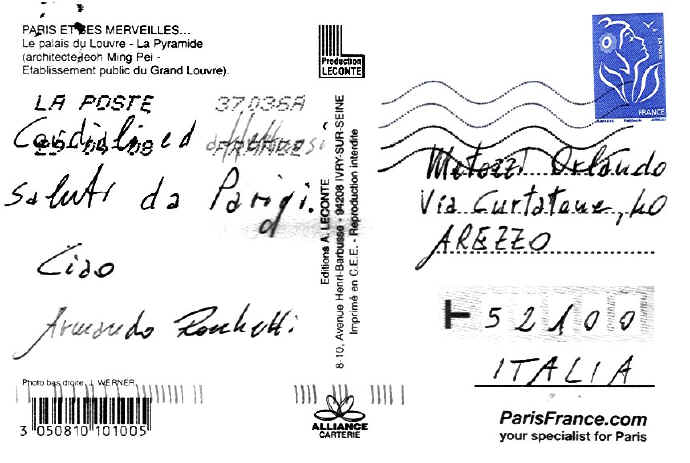 PARIS ET SES MERVEILLES...
Le palais du Louvre - La Pyramide
(architecte Ieoh Ming Pei -
Etablissement public du Grand Louvre).
Production
LECONTE
LA POSTE
FRANCE
LA POSTE 37036A
-04-08 FRANCE
Cordiali ed affettuosi
saluti da Parigi.
Ciao
Armando Ronchetti
Editions A. LECONTE
8-10, Avenue Henri-Barbusse - 94208 IVRY-SUR-SEINE
Imprimé en C.E.E. - Reproduction interdite
Metozzi Orlando
Via Curtatone, 40
AREZZO
52100
ITALIA
Photo bas droite : J. WERNER
3 050810 101005
ALLIANCE
CARTERIE
ParisFrance.com
your specialist for Paris